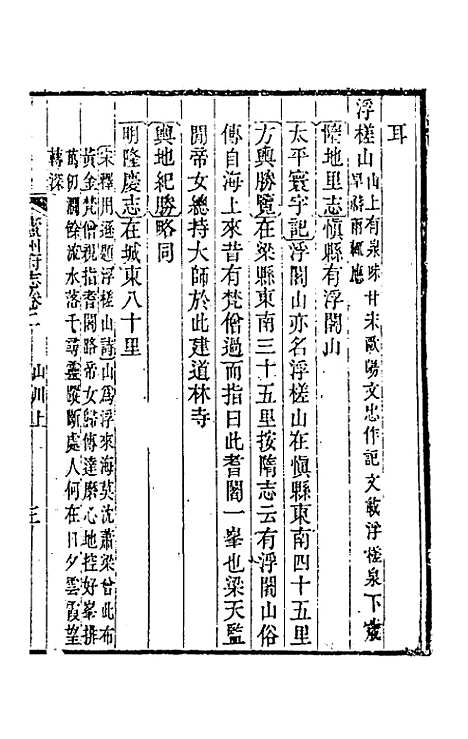 耳
浮槎山山上有泉味甘宋歐陽文忠作記文載浮槎泉下歲
旱禱雨輒應
隋地里志慎縣有浮闍山
太平寰宇記浮闍山亦名浮槎山在慎縣東南四十五里
方輿勝覽在梁縣東南三十五里按隋志云有浮闍山俗
傳自海上來昔有梵僧過而指曰此耆闍一峯也梁天監
間帝女總持大師於此建道林寺
輿地紀勝略同
明隆慶志在城東八十里
宋釋用遜題浮槎山詩山爲浮來海莫沈蕭梁曾此布
黃金梵僧親指耆闍路帝女歸傳達磨心地控好峯排
萬仞澗餘流水落千尋靈蹤斷處人何在日夕雲霞望
轉深
廬州府志卷二
山川上
三